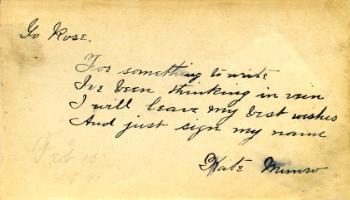 To Rose.
For something to write
I've been thinking in vein
I will leave my best wishes
And just sign my name
Kate Munro
Feb 15